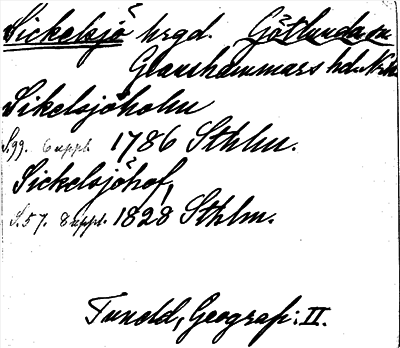 Sickelsjö hrgd. Götlunda sn
Glanshammars hd. Nrk
Sikelsjöholm
S. 99. 6 uppl. 1786 Sthlm.
Sickelsjöhof,
S. 57. 8 uppl. 1828 Sthlm.
Tuneld, Geograf: II.